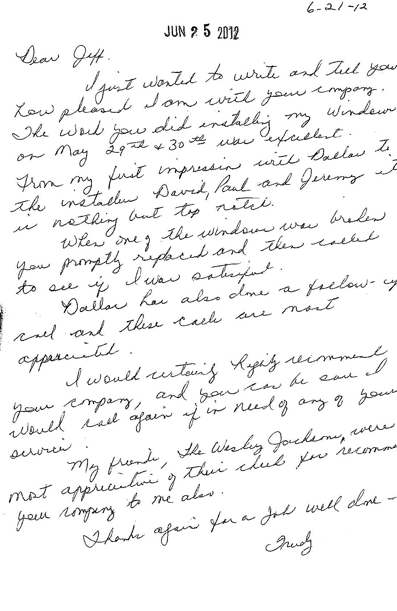 6-21-12
JUN 25 2012
Dear Jeff.
I just wanted to write and tell you
how pleased I am with your company.
The work you did installing my Window
on May 29th & 30th was excellent.
From my first impression with Dallas to
the installers David, Paul and Jeremy it
is nothing but top notch.
When one of the windows was broken
you promptly replaced and then called
to see if I was satisfied.
Dallas has also done a follow-up
call and these calls are most
appreciated.
I would certainly highly recommend
your company, and you can be sure I
would call again if in need of any of your
service.
My friends, the Wesley Jacksons, were
most appreciative of their check for recomm
your company to me also.
Thanks again for a Job well done -
Trudy